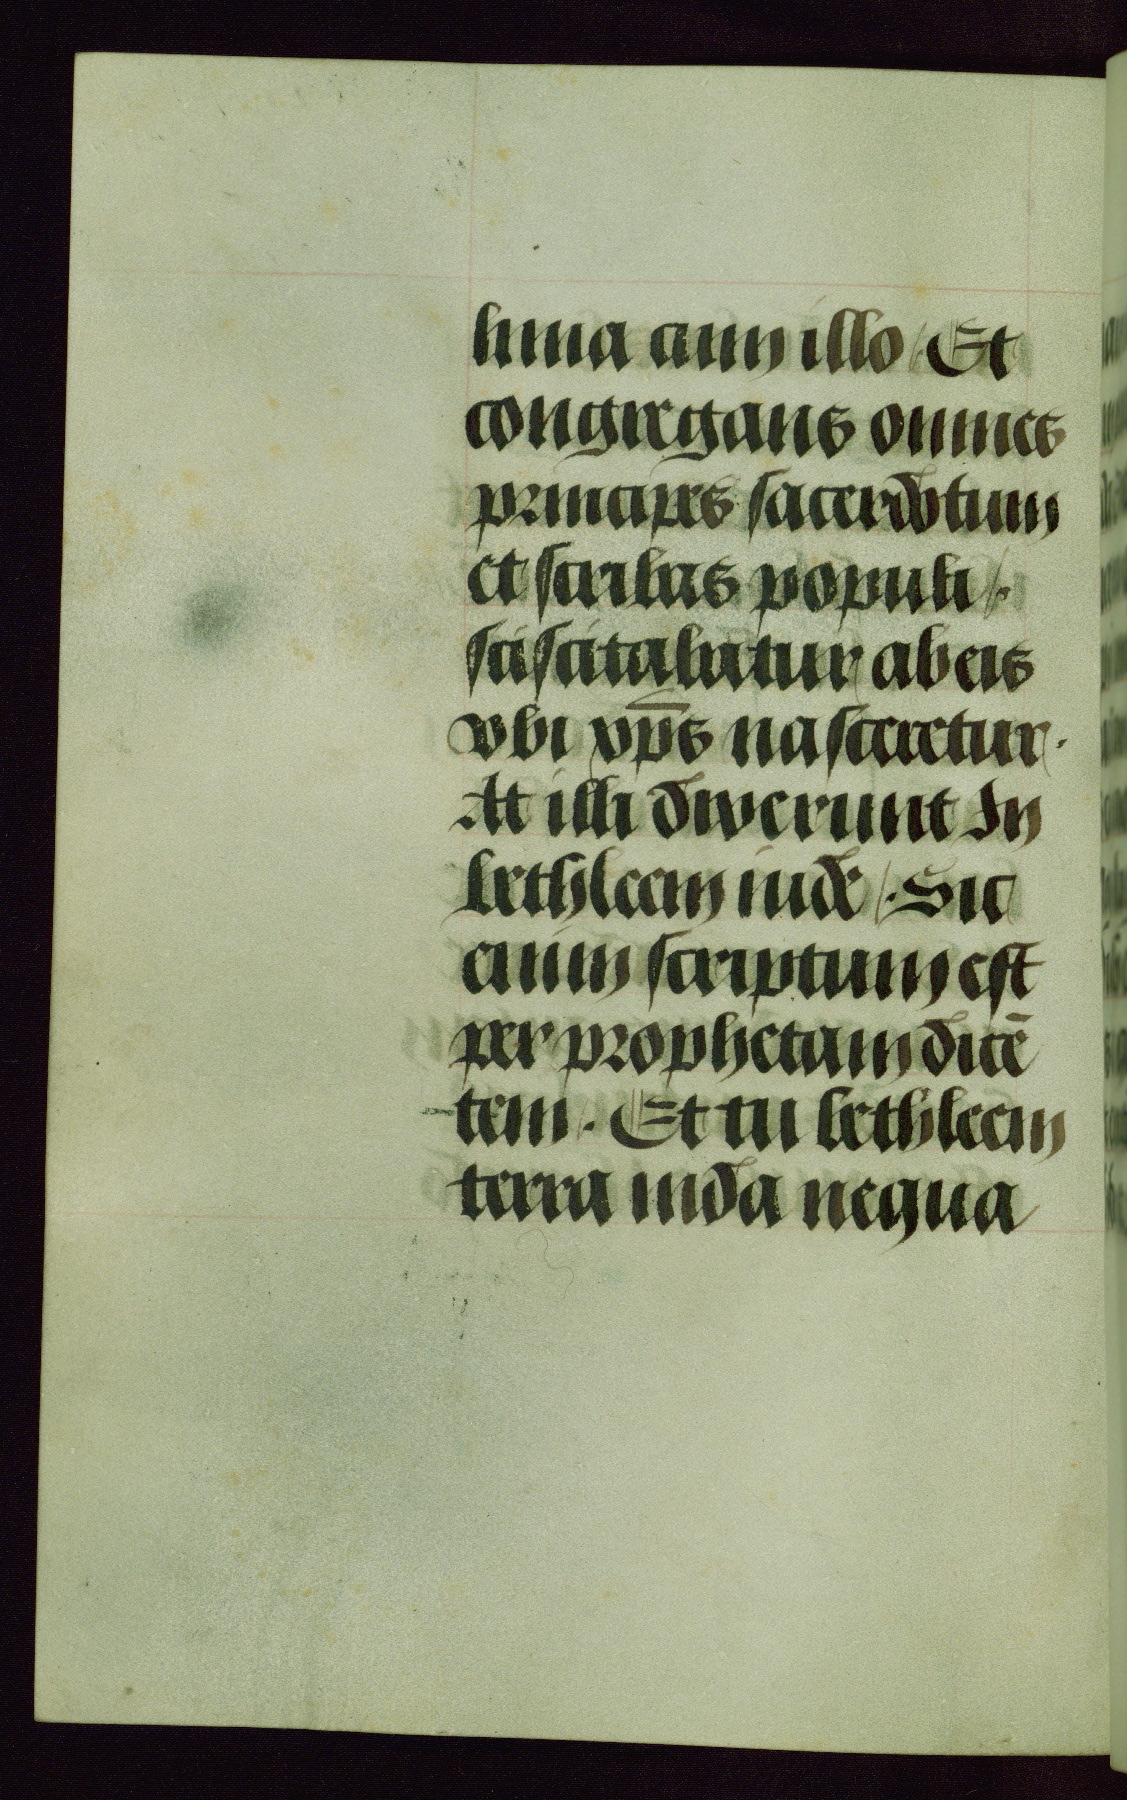 lima cum illo / Et
congregans omnes
principes sacerdotum
et scribas populi /.
sciscitabatur ab eis
vbi xp̄s nasceretur.
At illi dixerunt In
bethleem iude /. Sic
enim scriptum est
per prophetam dicē
tem. Et tu bethleem
terra iuda nequa